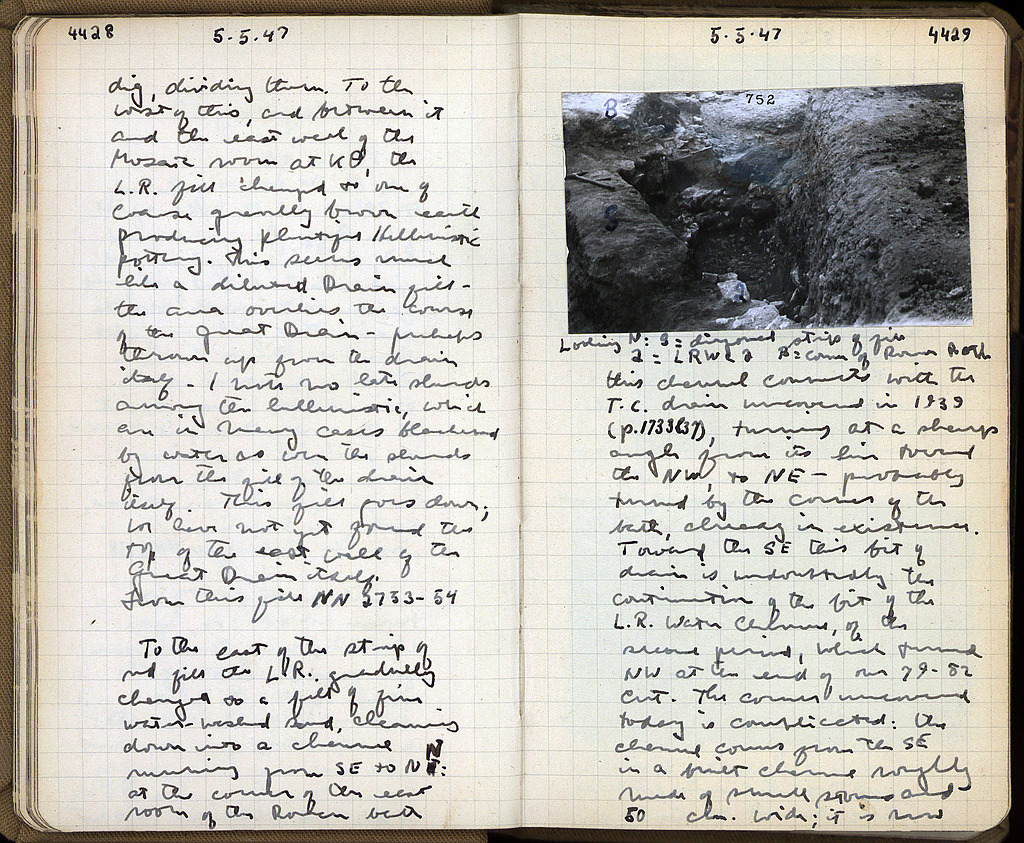 4428
5.5.47
dig, dividing them. To the
west of this, and between it
and the east wall of the
Mosaic room at KΘ, the
L.R. fill changed to one of
coarse gravelly brown earth
producing plentiful Hellenistic
pottery. This seems much
like a disturbed Drain fill -
the area overlies the course
of the Great Drain - perhaps
thrown up from the drain
itself - I note no late sherds
among the hellenistic, which
are in many cases blackened
by water as were the sherds
from the fill of the drain
itself. This fill goes down;
we have not yet found the
top of the east wall of the
Great Drain itself.
From this fill NN 2733-54
To the east of the strip of
red fill the L.R. gradually
changed to a fill of fine
water-washed sand, cleaning
down into a channel
running from SE to N
at the corner of the east
room of the Roman bath
5.5.47
4429
752
B
Looking N: = disturbed strip of fill
2 = LRW B = corner of Roman Bath
this channel connects with the
T.C. drain uncovered in 1939
(p. 1733), turning at a sharp
angle from its line toward
the NW, to NE - probably
turned by the corner of the
bath, already in existence.
Toward the SE this bit of
drain is undoubtedly the
continuation of the bit of the
L.R. Water Channel, of the
second period, which turned
NW at the end of our 79-82
cut. The corner uncovered
today is complicated: the
channel comes from the SE
in a built channel roughly
made of small stones and
50 cm. wide; it is now